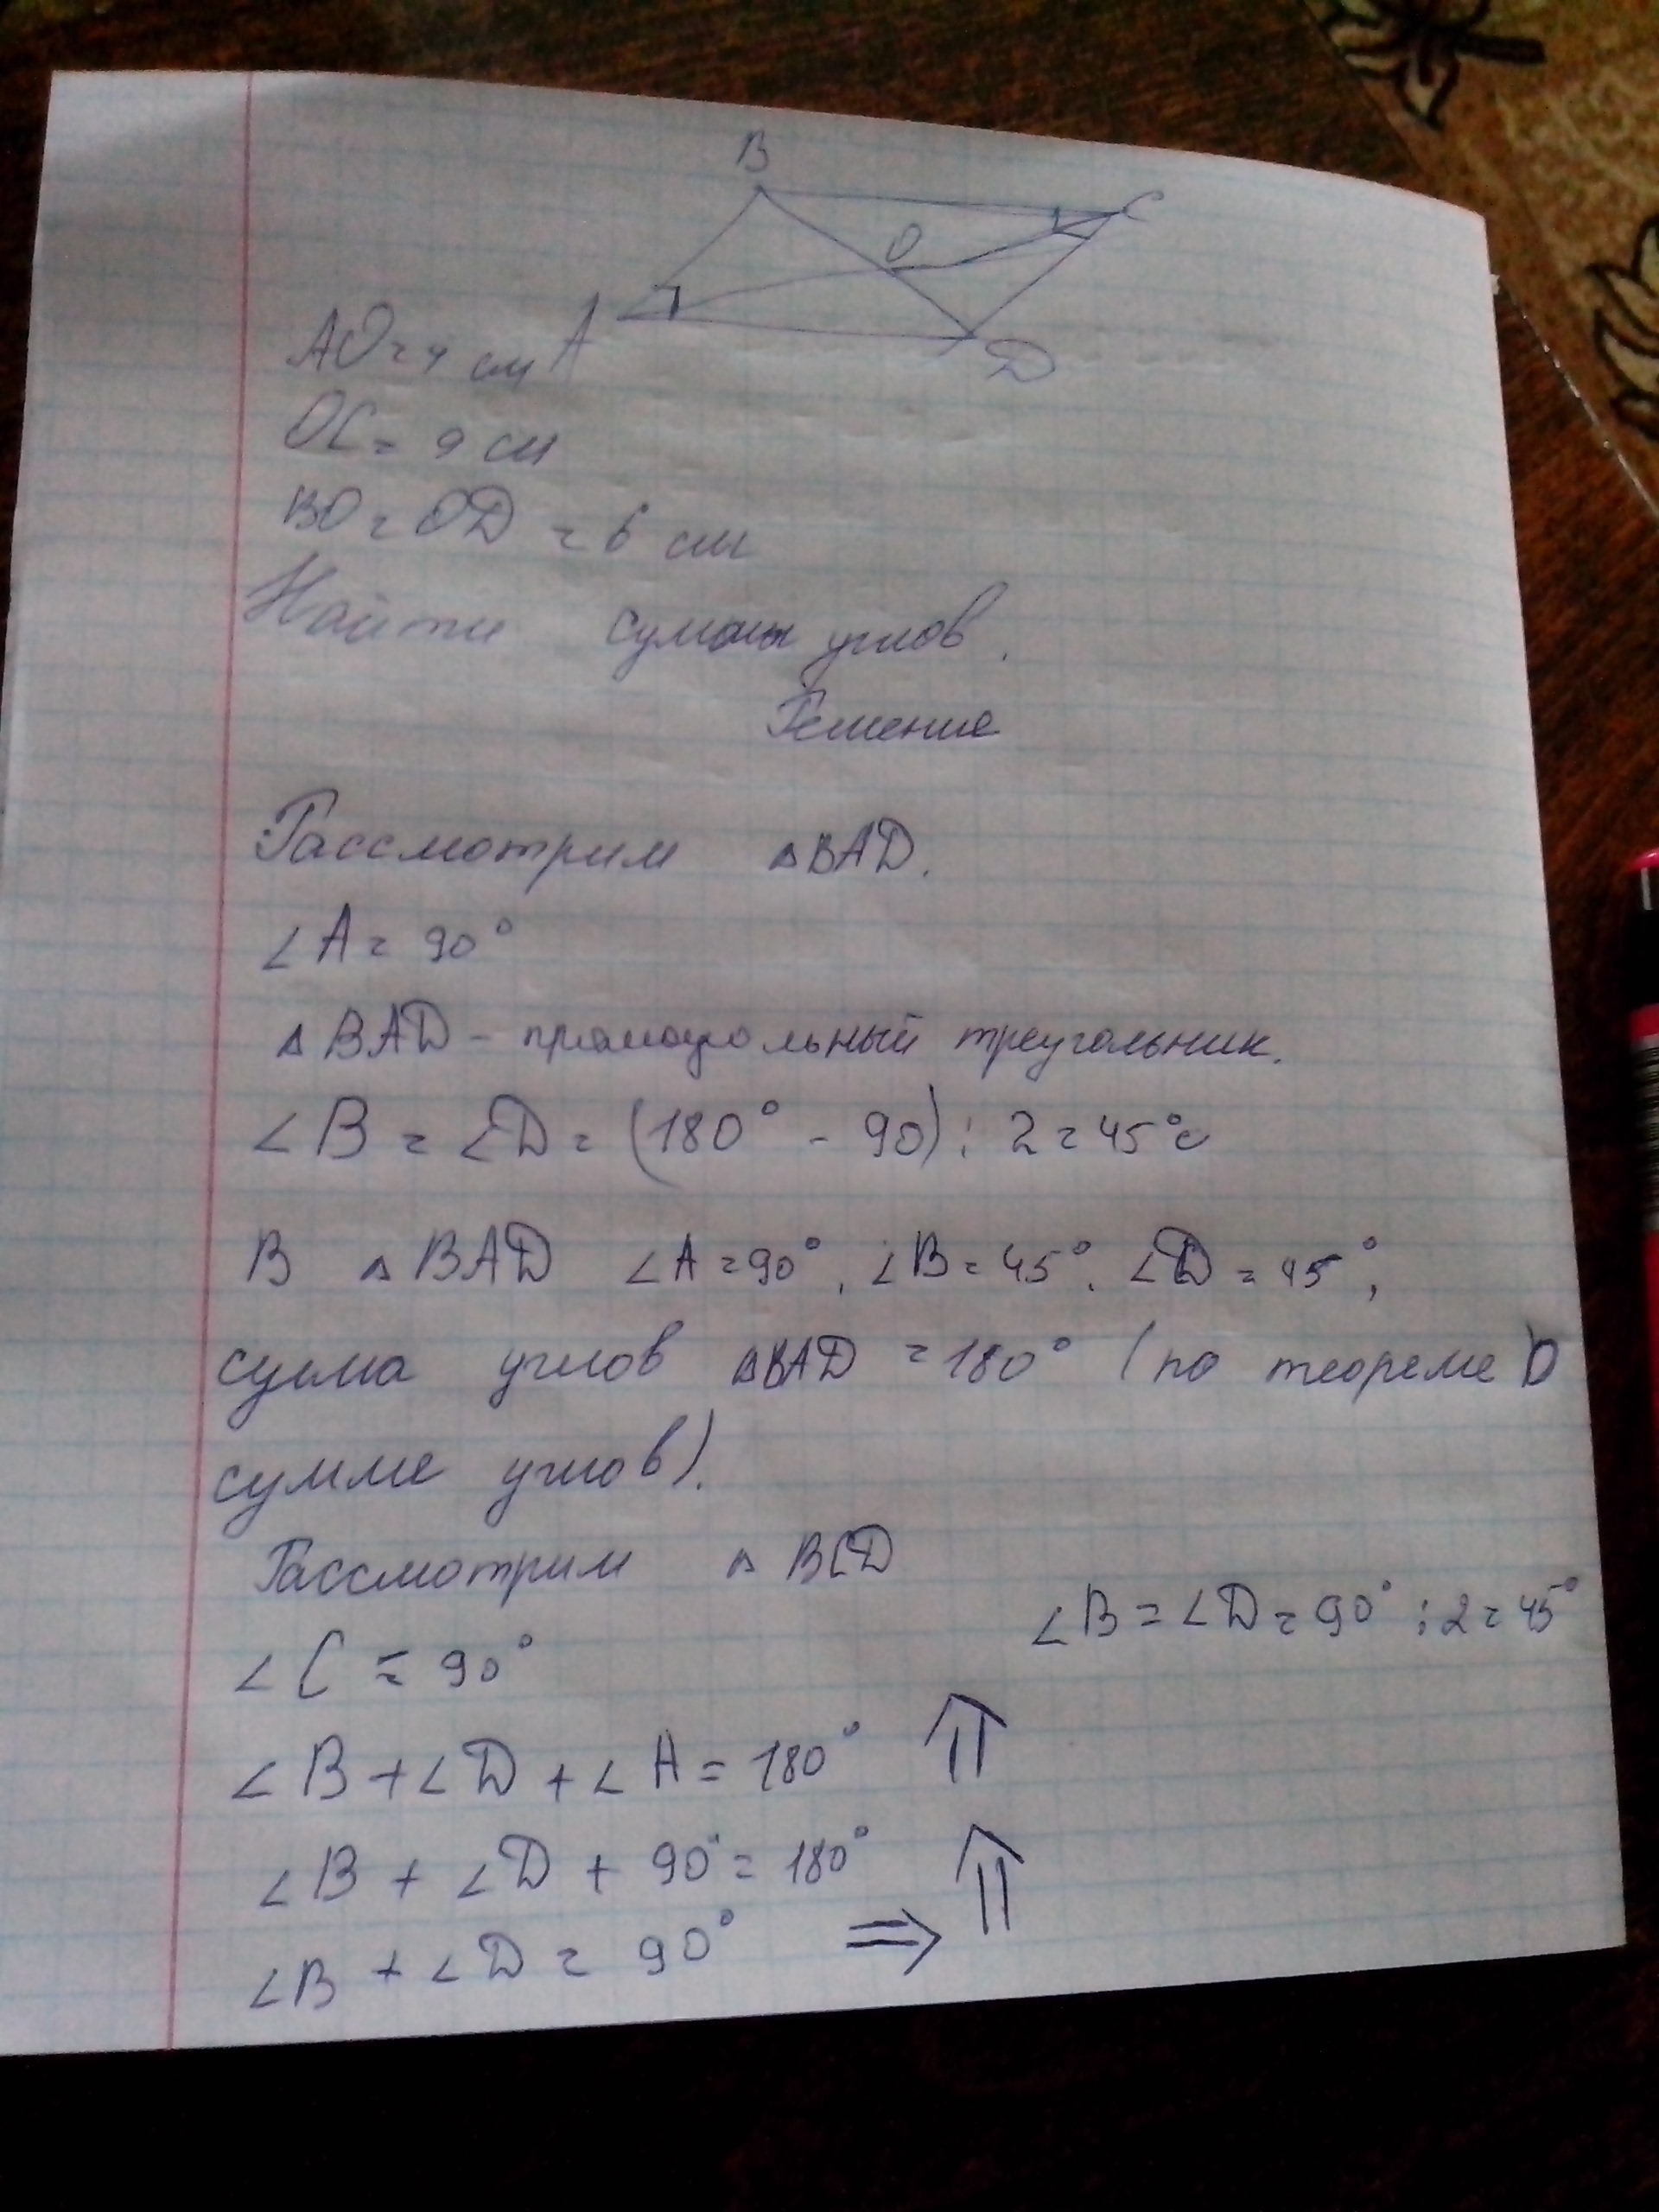 B
C
O
A
D
AO = 4 см
OC = 9 см
BO = OD = 6 см
Найти сумму углов.
Решение
Рассмотрим ΔBAD.
∠A = 90°
ΔBAD - прямоугольный треугольник.
∠B = ∠D = (180° - 90) : 2 = 45°
В ΔBAD ∠A = 90°, ∠B = 45°. ∠D = 45°,
сумма углов ΔBAD = 180° (по теореме о
сумме углов).
Рассмотрим ΔBCD
∠B = ∠D = 90° : 2 = 45°
∠C = 90°
∠B + ∠D + ∠A = 180° ⇑
∠B + ∠D + 90° = 180° ⇑
∠B + ∠D = 90° ⇒